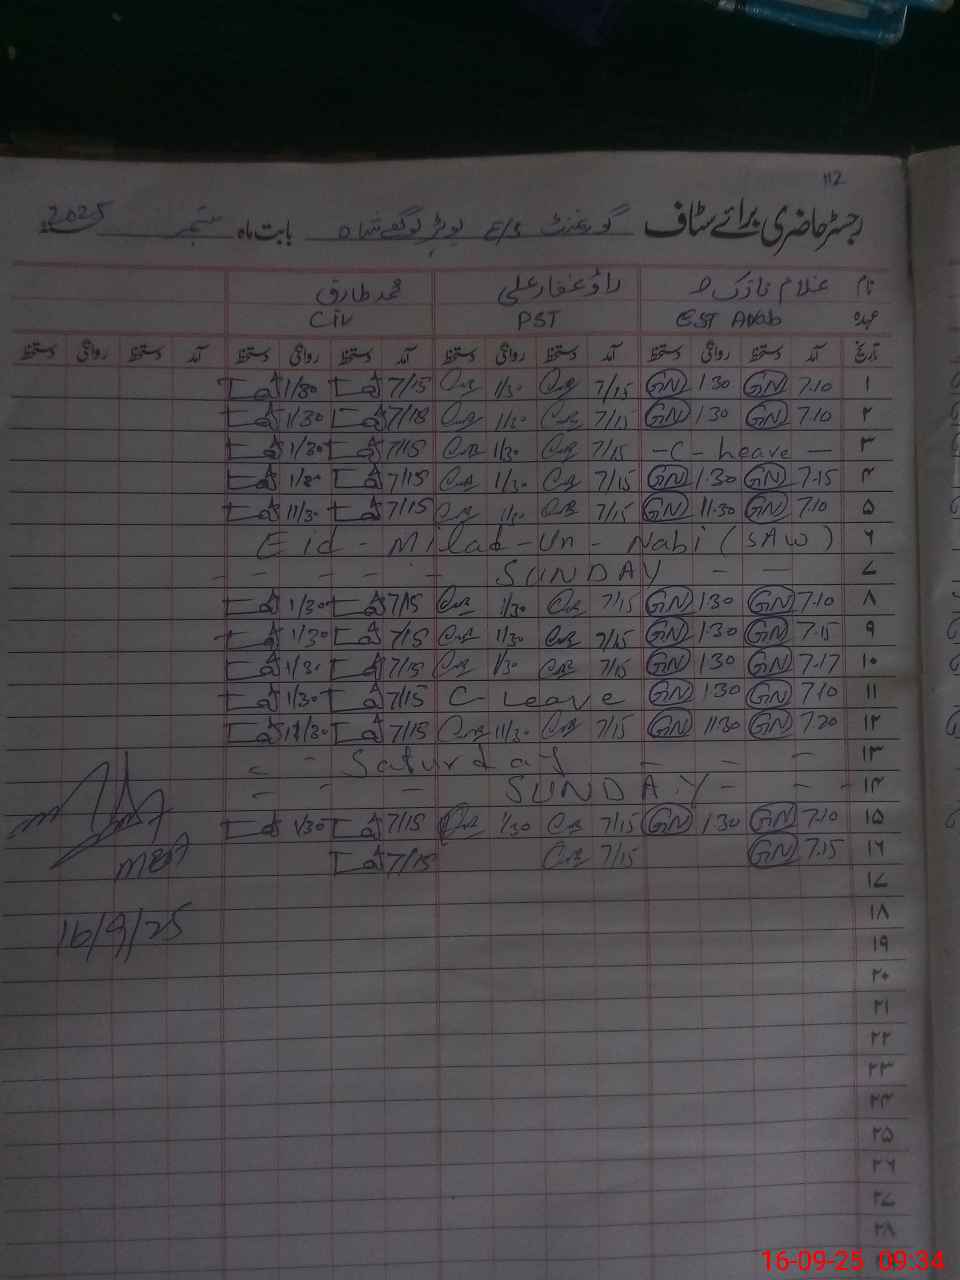 112
رجسٹر حاضری برائے سٹاف گورنمنٹ بابت ماہ ستمبر 2025
نام غلام نازک راؤ غفار علی محمد طارق
عہدہ EST Arab PST Civ
تاریخ آمد دستخط روانگی دستخط آمد دستخط روانگی دستخط آمد دستخط روانگی دستخط آمد دستخط روانگی دستخط
۱ 7.10 GN 1.30 GN 7/15 1/30 7/15 1/30
۲ 7.10 GN 1.30 GN 7/15 11/30 7/15 1/30
۳ — C - Leave — 7/15 1/30 7/15 1/30
۴ 7.15 GN 1.30 GN 7/15 1/30 7/15 1/30
۵ 7.10 GN 11.30 GN 7/15 11/30 7/15 11/30
۶ Eid - Milad - Un - Nabi (SAW)
۷ SUNDAY
۸ 7.10 GN 1.30 GN 7/15 1/30 7/15 1/30
۹ 7.15 GN 1.30 GN 7/15 1/30 7/15 1/30
۱۰ 7.17 GN 1.30 GN 7/15 1/30 7/15 1/30
۱۱ 7.10 GN 1.30 GN C - Leave 7/15 1/30
۱۲ 7.20 GN 11.30 GN 7/15 11/30 7/15 11/30
۱۳ Saturday
۱۴ SUNDAY
۱۵ 7.10 GN 1.30 GN 7/15 1/30 7/15 1/30
۱۶ 7.15 GN 7/15 7/15
۱۷
۱۸
۱۹
۲۰
۲۱
۲۲
۲۳
۲۴
۲۵
۲۶
۲۷
۲۸
16/9/25
16-09-25 09:34